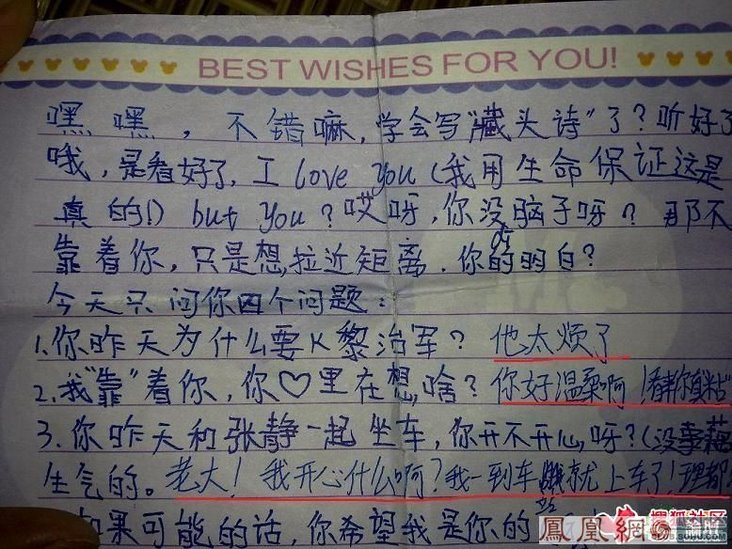 BEST WISHES FOR YOU!
嘿嘿,不错嘛,学会写"藏头诗"了?听好了
哦,是看好了,I love you(我用生命保证这是
真的!) but you?哎呀,你没脑子呀?那不
靠着你,只是想拉近距离,你的明白?
今天只问你四个问题:
1.你昨天为什么要K黎治军? 他太烦了
2.我"靠"着你,你♡里在想啥? 你好温柔啊!
3.你昨天和张静一起坐车,你开不开心呀?(没事
生气的。 老大!我开心什么啊?我一到车站就上车了!理都
如果可能的话,你希望我是你的
鳳凰網
搜狐社区